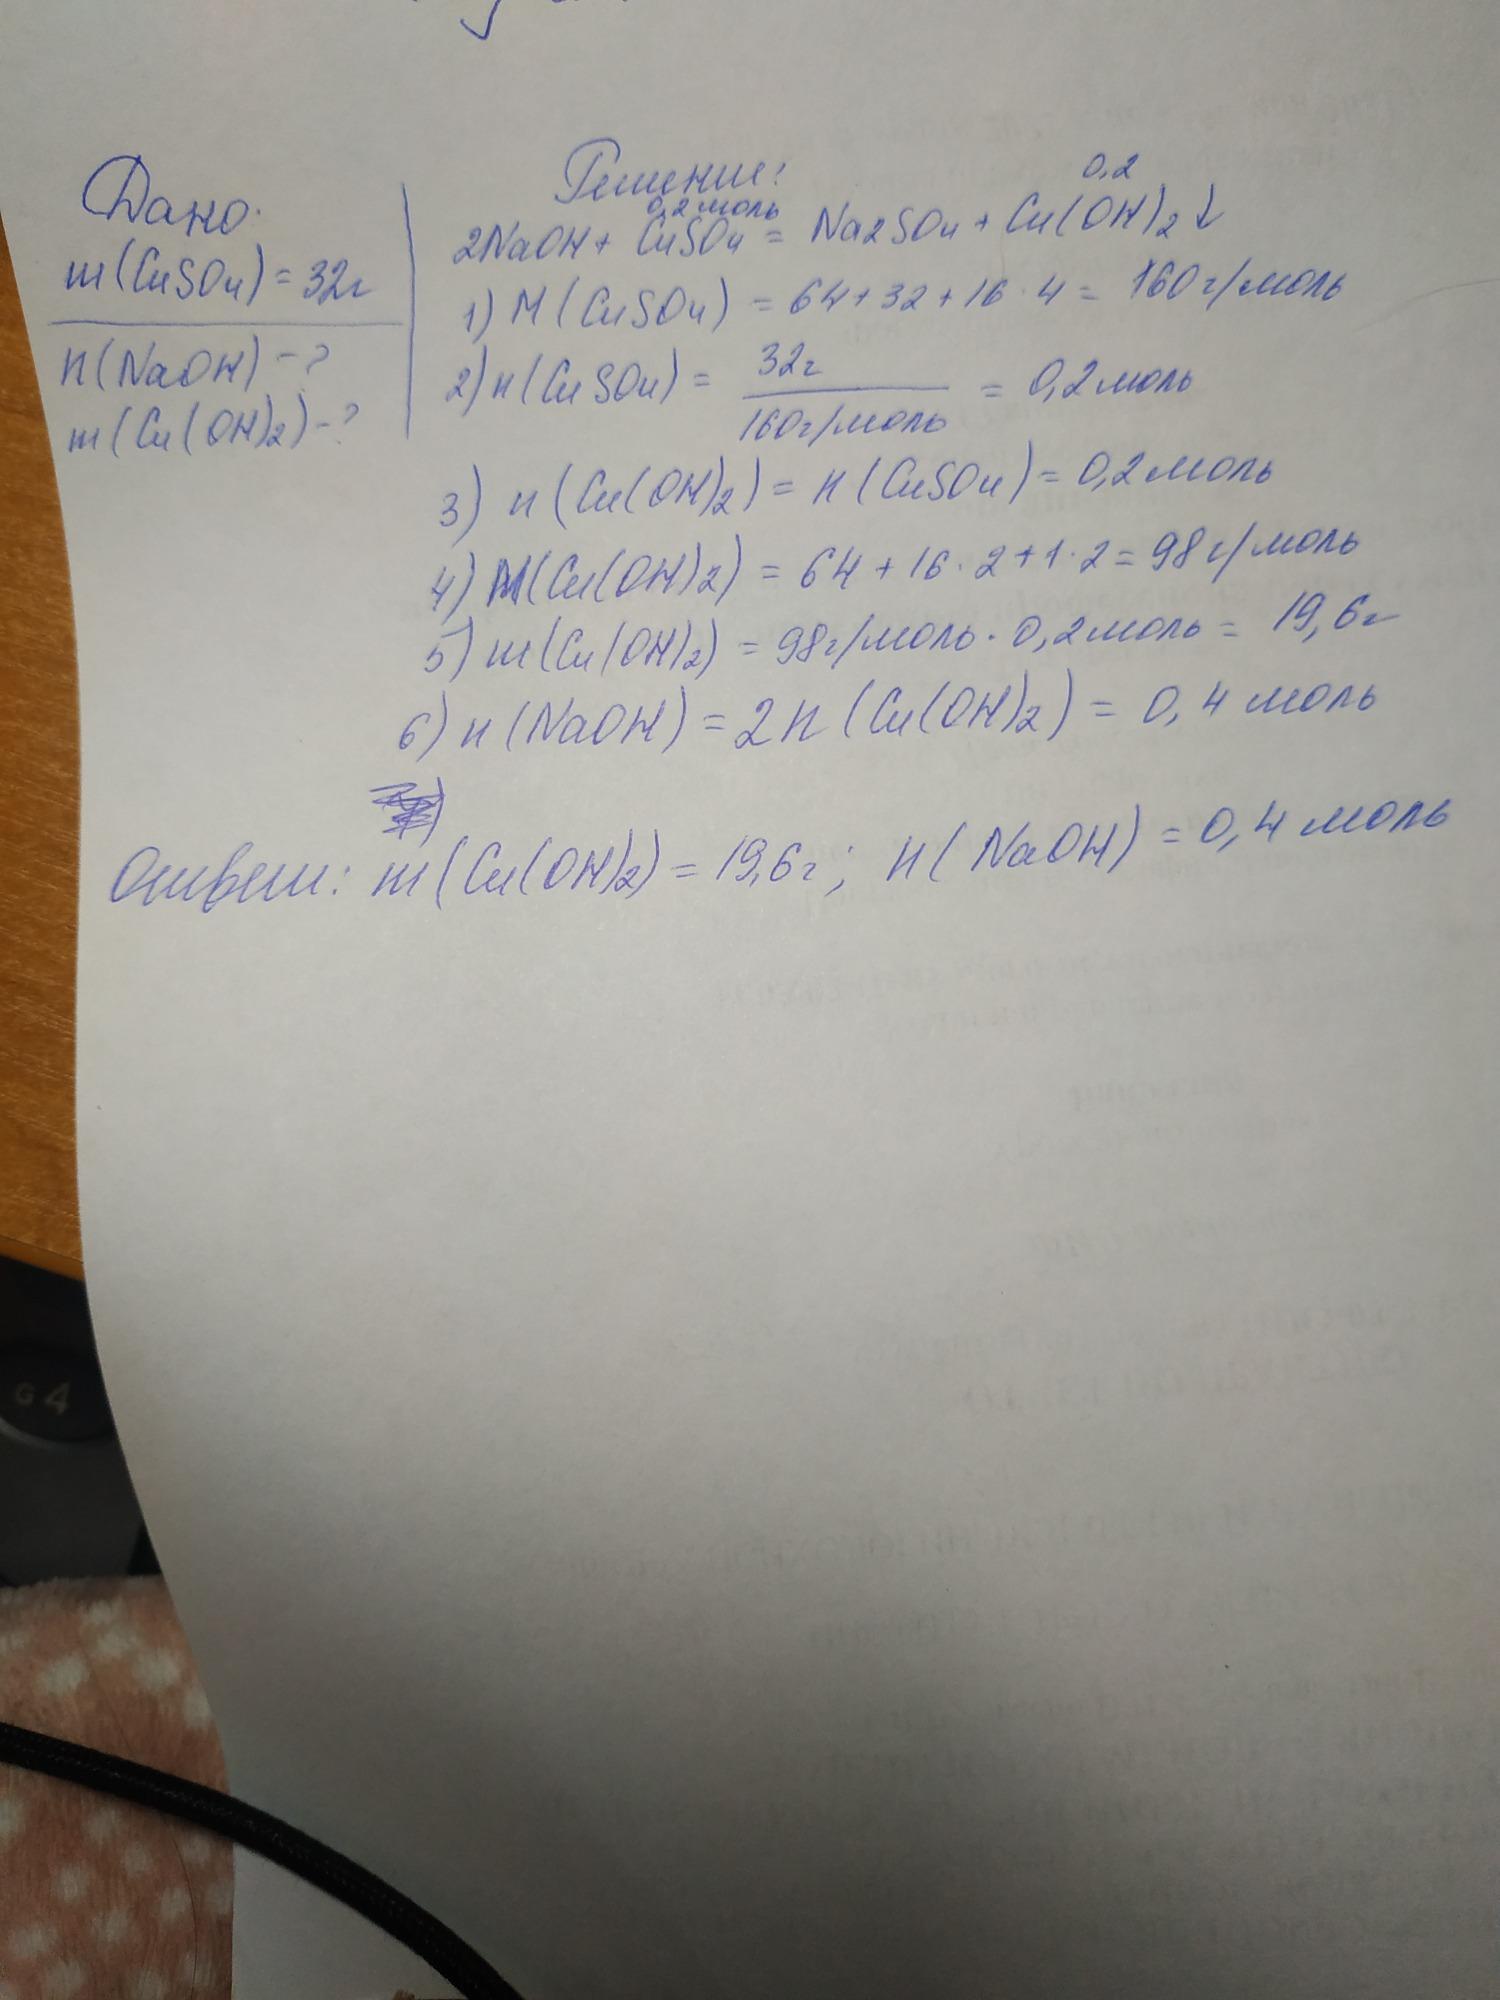 Дано:
m(CuSO4) = 32г
n(NaOH) - ?
m(Cu(OH)2) - ?
Решение:
0,2 моль 0,2
2NaOH + CuSO4 = Na2SO4 + Cu(OH)2 ↓
1) M(CuSO4) = 64 + 32 + 16 · 4 = 160 г/моль
2) n(CuSO4) = 32г / 160г/моль = 0,2 моль
3) n(Cu(OH)2) = n(CuSO4) = 0,2 моль
4) M(Cu(OH)2) = 64 + 16 · 2 + 1 · 2 = 98 г/моль
5) m(Cu(OH)2) = 98г/моль · 0,2 моль = 19,6г
6) n(NaOH) = 2n(Cu(OH)2) = 0,4 моль
Ответ: m(Cu(OH)2) = 19,6г; n(NaOH) = 0,4 моль
G4